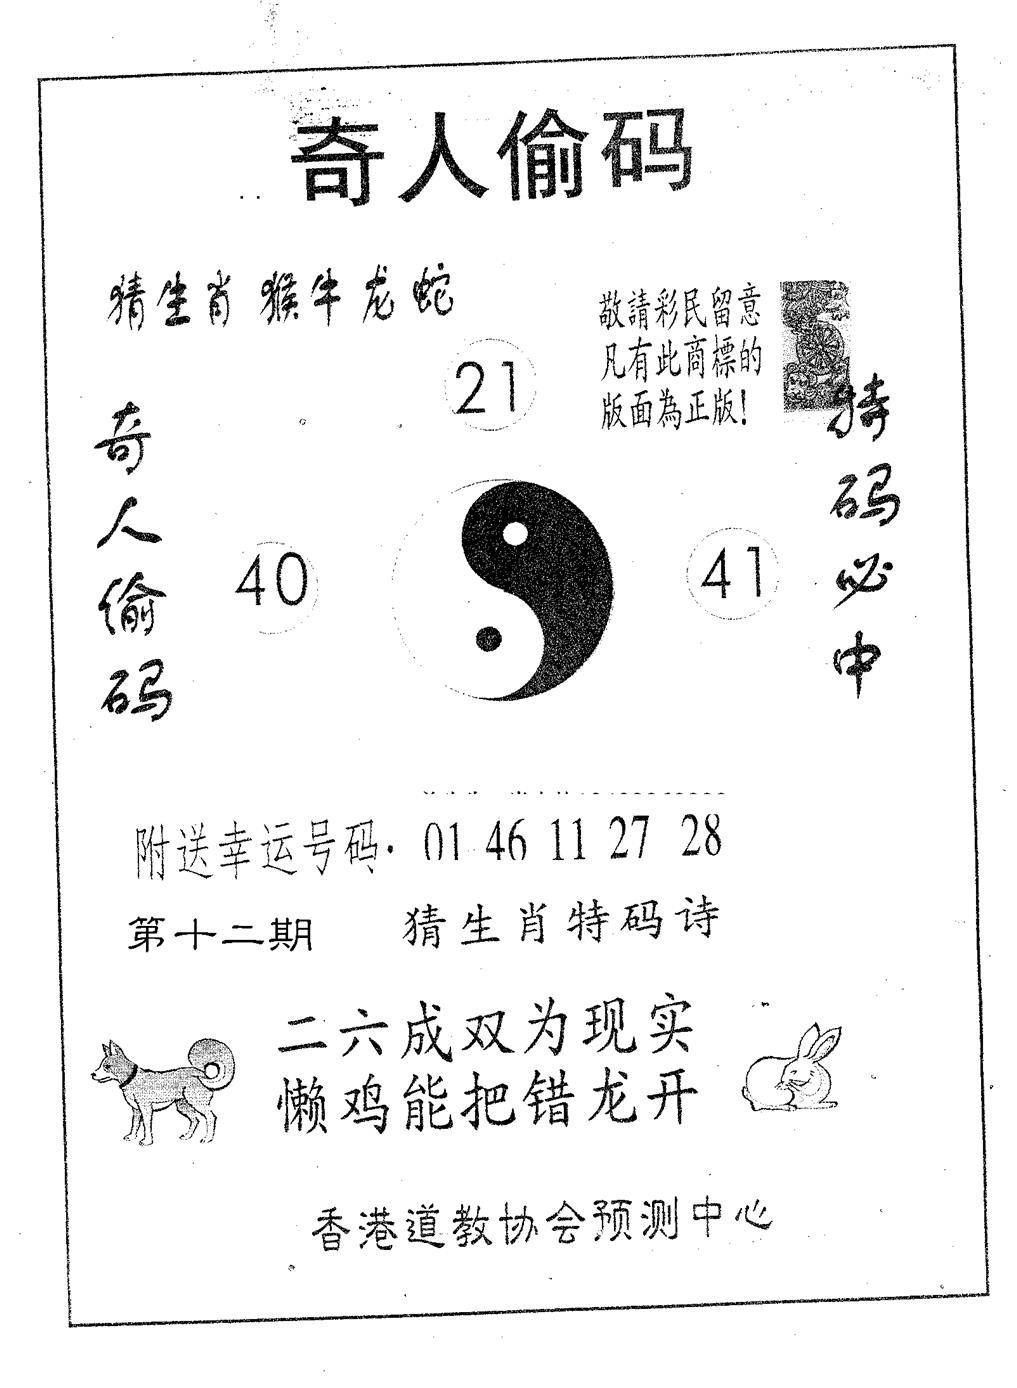 奇人偷码
猜生肖 猴牛龙蛇
敬請彩民留意
凡有此商標的
版面為正版！
21
奇人偷码
40
41
特码必中
附送幸运号码· 01 46 11 27 28
第十二期 猜生肖特码诗
二六成双为现实
懒鸡能把错龙开
香港道教协会预测中心